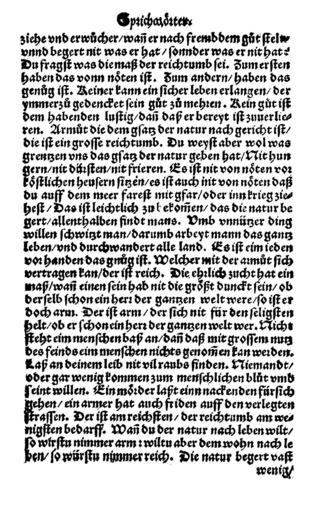 Sprichwörten.
ziehe vnd erwücher/wañ er nach frembdem gůt stelu
vnnd begert nit was er hat/sonnder was er nit hat?
Du fragst was die maß der reichtumb sei. Zum ersten
haben das vonn nöten ist. Zum andern/haben das
genůg ist. Keiner kann ein sicher leben erlangen/der
ymmerzů gedencket sein gůt zů mehren. Kein gůt ist
dem habenden lustig/dañ daß er bereyt ist zuuerlie-
ren. Armůt die dem gsatz der natur nach gericht ist/
die ist ein grosse reichtumb. Du weyst aber wol was
grentzen vns das gsatz der natur geben hat/Nit hun
gern/nit dürsten/nit frieren. Es ist nit von nöten vor
köstlichen heusern sitzen/es ist auch nit von nöten daß
du auff dem meer farest mit gfar/oder inn krieg zie-
hest/Das ist leichtlich zů bekom̃en/das die natur be
gert/allenthalben findt mans. Vmb vnnützer ding
willen schwitzt man/darumb arbeyt mann das gantz
leben/vnd durchwandert alle land. Es ist eim ieden
vorhanden das gnůg ist. Welcher mit der armůt sich
vertragen kan/der ist reich. Die ehrlich zucht hat ein
maß/wañ einen sein hab nit die größt dunckt sein/ob
der selb schon ein herr der gantzen welt were/so ist er
doch arm. Der ist arm/der sich nit für den seligsten
helt/ob er schon ein herr der gantzen welt wer. Nicht
steht eim menschen baß an/dañ daß mit grossem nutz
des feinds eim menschen nichts genom̃en kan werden.
Laß an deinem leib nit vil raubs finden. Niemandt/
oder gar wenig kommen zum menschlichen blůt vmb
seint willen. Ein mörder laßt einn nackenden fürsich
gehen/ein armer hat auch friden auff den verlegten
strassen. Der ist am reichsten/der reichtumb am we-
nigsten bedarff. Wañ du der natur nach leben wilt/
so würstu nimmer arm: wiltu aber dem wohn nach le
ben/so würstu nimmer reich. Die natur begert vast
wenig/